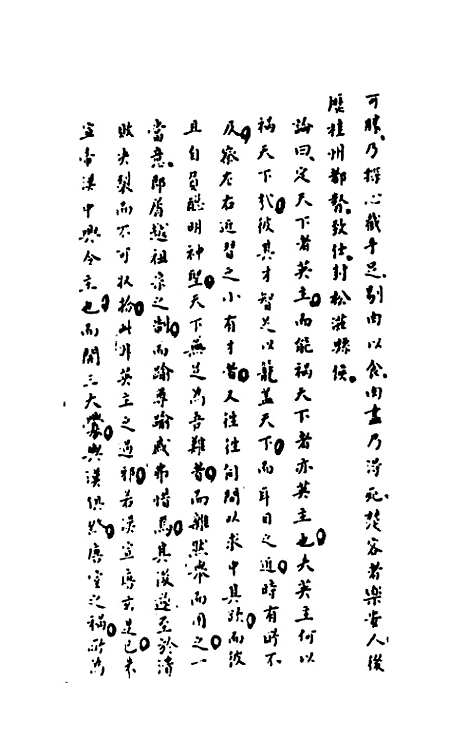 可勝乃探心截手足剔肉以食肉盡乃得死楚客者樂安人後
歷桂州都督致仕封松滋縣侯
論曰定天下者英主而能禍天下者亦英主也夫英主何以
禍天下哉彼其才智足以籠蓋天下而耳目之近時有所不
及察左右近習之小有才者又往往伺間以求中其欲而彼
且自負聰明神聖天下無足為吾難者而離然舉而用之一
當意即屑越祖宗之制而踰尊踰戚弗惜焉其後遂至於潰
敗決裂而不可收拾此非英主之過邪若漢宣唐玄是已夫
宣帝漢中興令主也而開三大釁與漢俱終唐室之禍所為